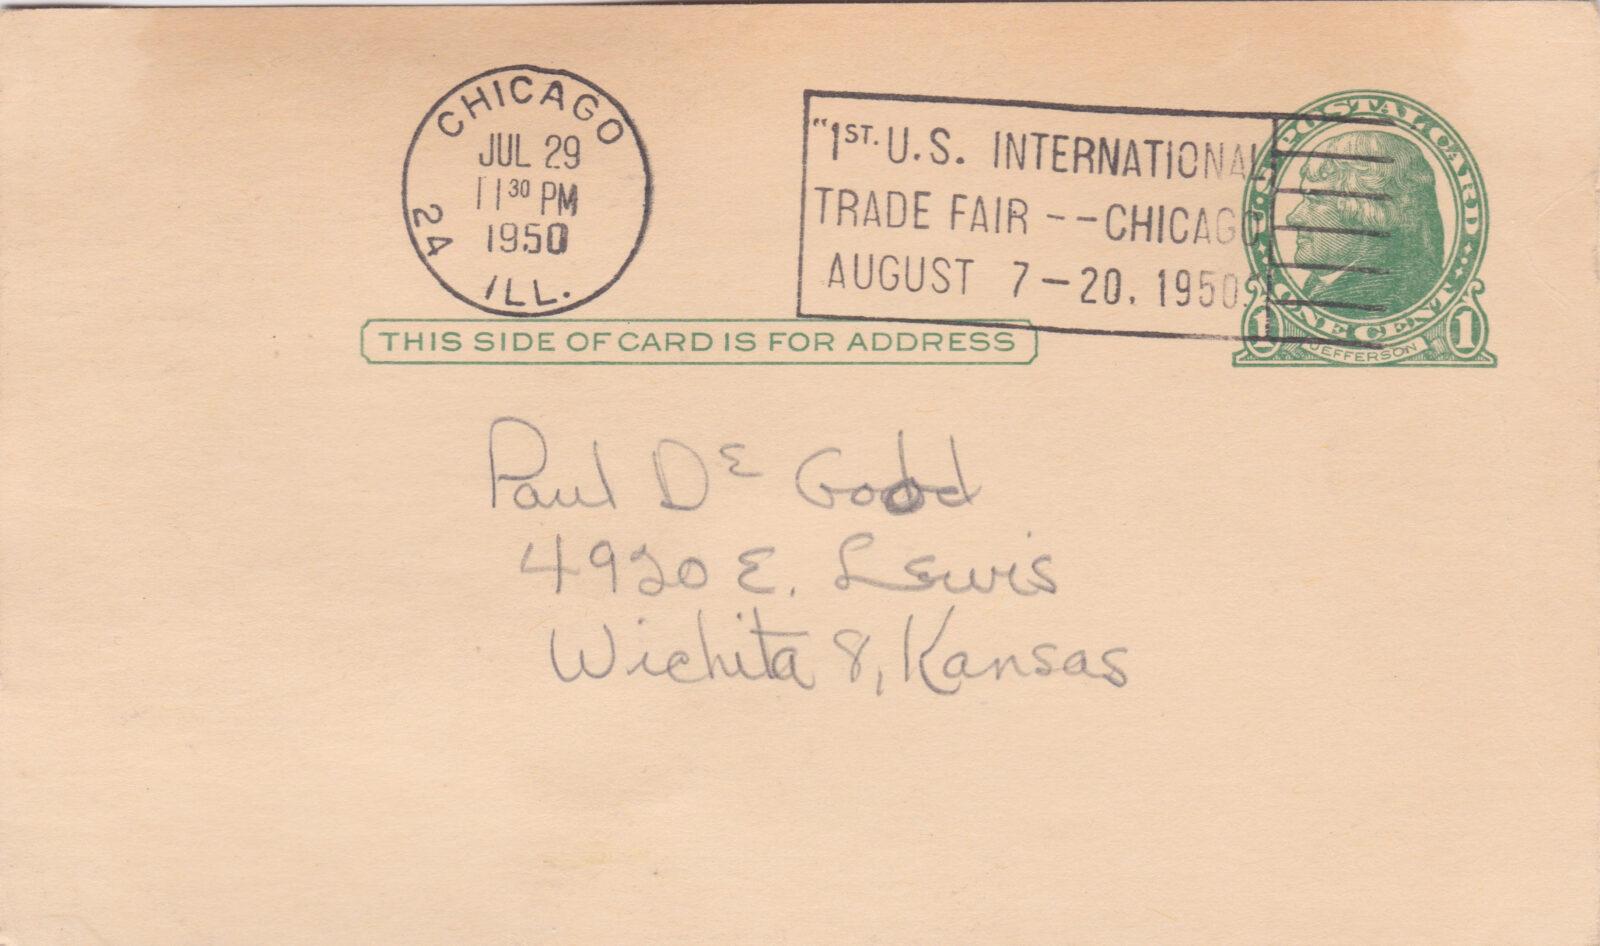 CHICAGO
JUL 29
11 30 PM
1950
24 ILL.
"1ST. U.S. INTERNATIONAL
TRADE FAIR -- CHICAGO
AUGUST 7-20, 1950.
U.S. POSTAL CARD
ONE CENT
1 JEFFERSON 1
THIS SIDE OF CARD IS FOR ADDRESS
Paul DE Good
4920 E. Lewis
Wichita 8, Kansas